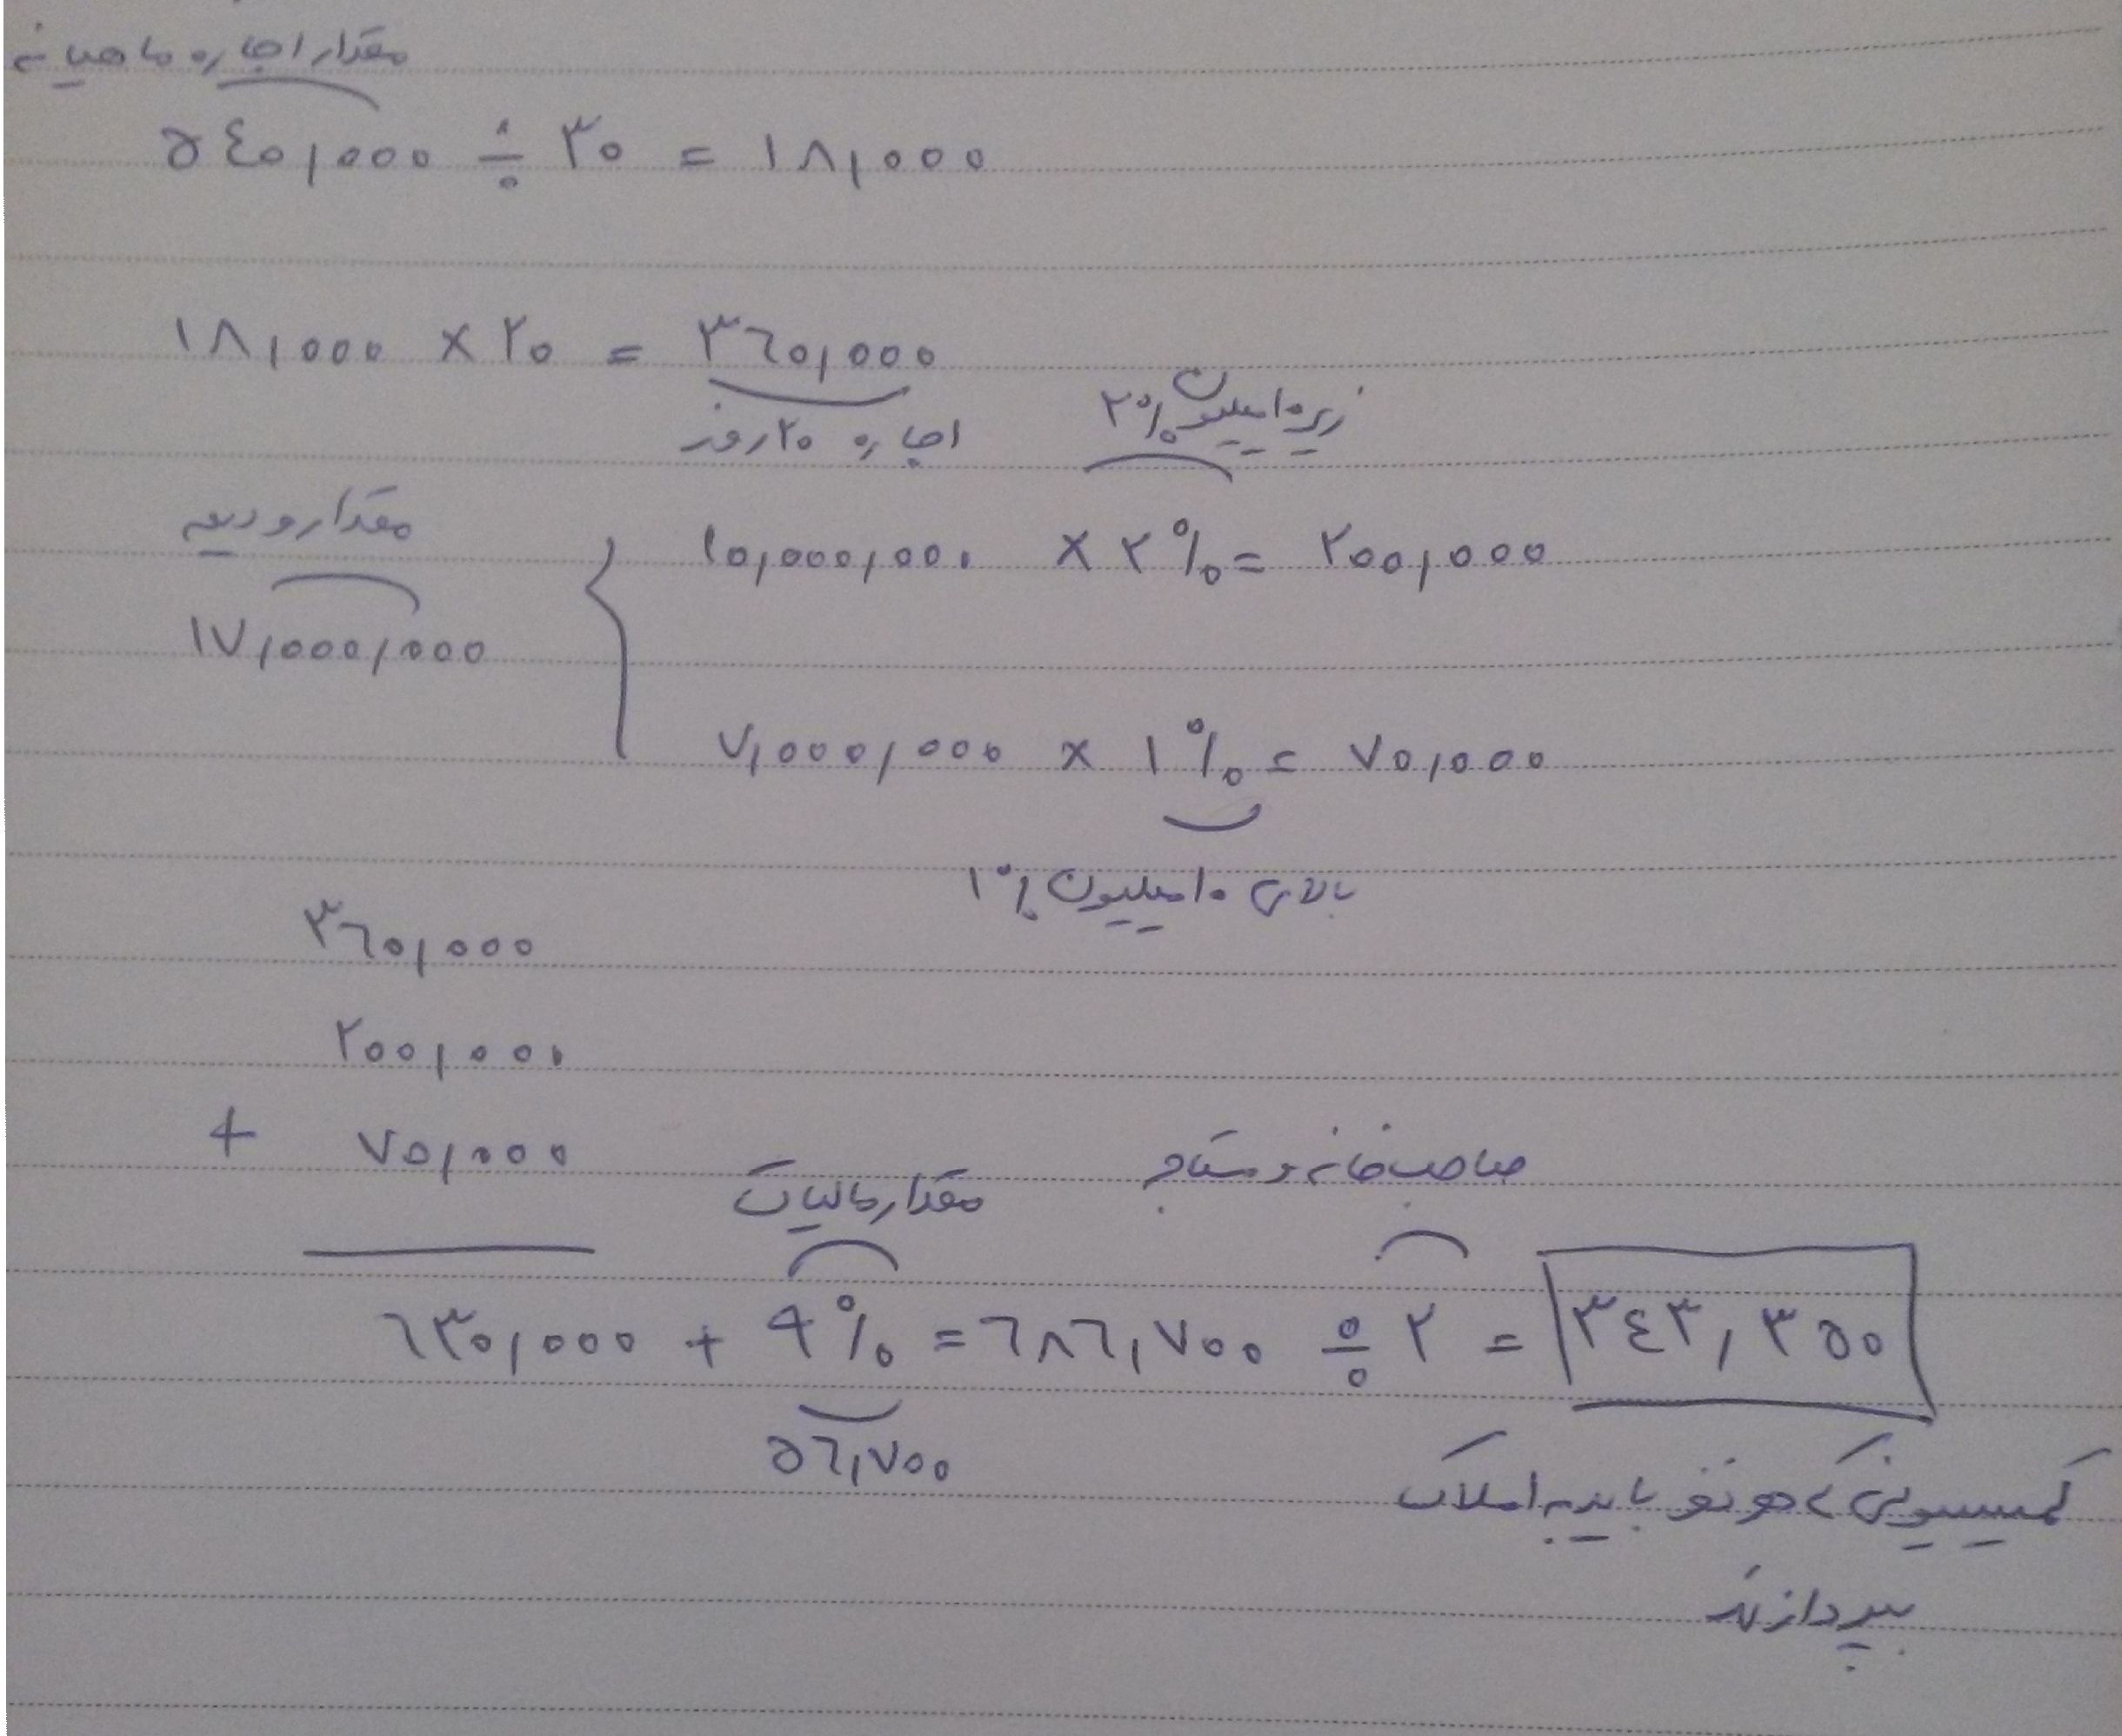 مقدار اجاره ماهیانه
۵۴۰,۰۰۰ ÷ ۳۰ = ۱۸,۰۰۰
۱۸,۰۰۰ × ۲۰ = ۳۶۰,۰۰۰
اجاره ۲۰ روز
زیر ۱۰ میلیون ۲%
مقدار ودیعه
۱۷,۰۰۰,۰۰۰
۱۰,۰۰۰,۰۰۰ × ۲% = ۲۰۰,۰۰۰
۷,۰۰۰,۰۰۰ × ۱% = ۷۰,۰۰۰
بالای ۱۰ میلیون ۱%
۳۶۰,۰۰۰
۲۰۰,۰۰۰
+ ۷۰,۰۰۰
مقدار مالیات
صاحب خانه و مستاجر
۶۳۰,۰۰۰ + ۹% = ۶۸۶,۷۰۰ ÷ ۲ = ۳۴۳,۳۵۰
۵۶,۷۰۰
کمیسیونی که هر نفر باید به املاک
بپردازند